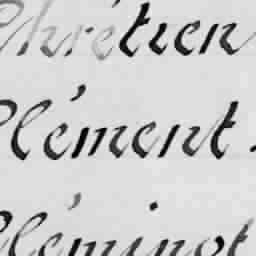 Chrétien
Clément.
Cléminot